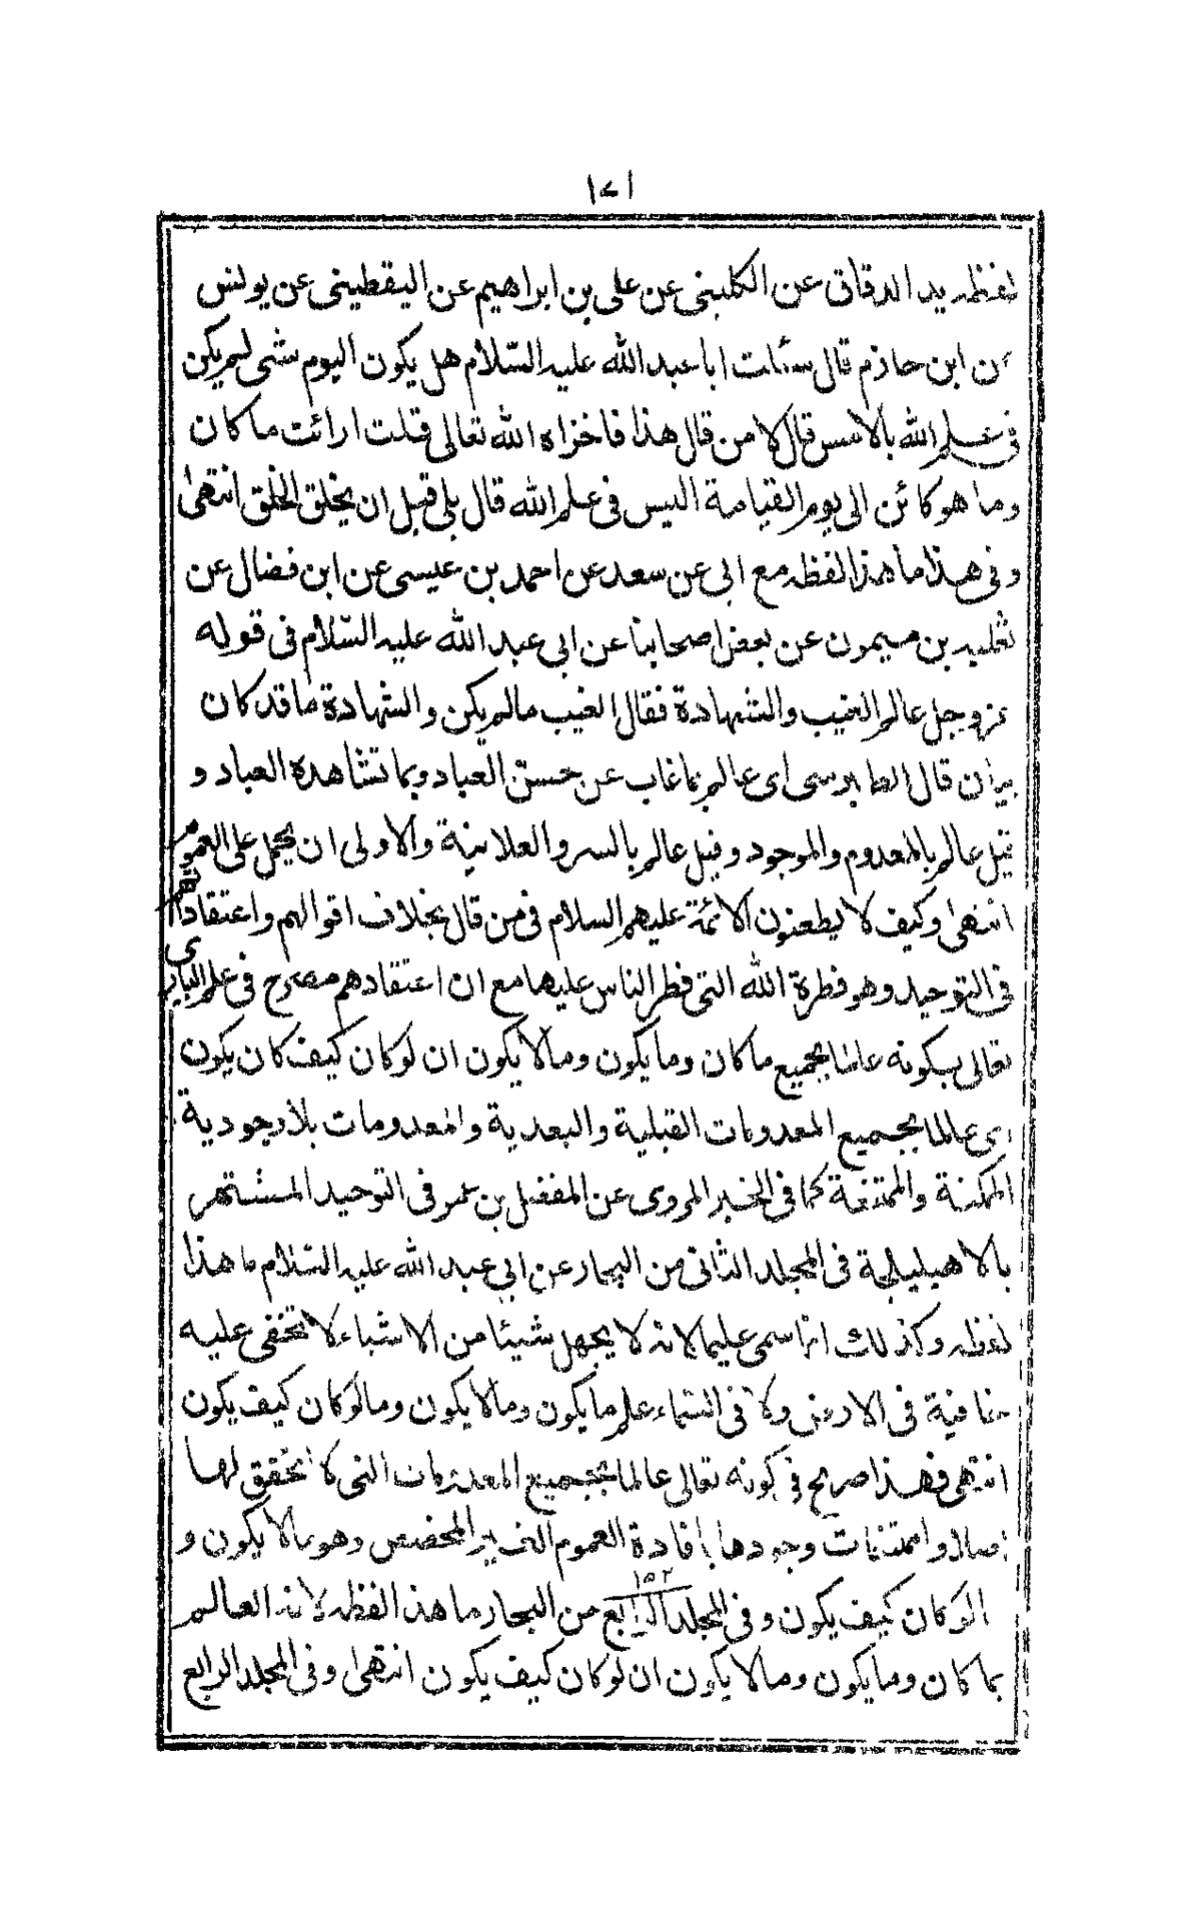 ١٧١
لفظه يد الدقاق عن الكليني عن على بن ابراهيم عن اليقطيني عن يونس
عن ابن حازم قال سئلت ابا عبد الله عليه السّلام هل يكون اليوم شى لم يكن
فى علم الله بالامس قال لا من قال هذا فاخزاه الله تعالى قلت ارائت ما كان
وما هو كائن الى يوم القيامة اليس فى علم الله قال بلى قبل ان يخلق الخلق انتهى
وفى هذا ما هذا لفظه مع ابى عن سعد عن احمد بن عيسى عن ابن فضال عن
ثعلبه بن ميمون عن بعض اصحابنا عن ابى عبد الله عليه السّلام فى قوله
عز وجل عالم الغيب والشهادة فقال الغيب ما لم يكن والشهادة ما قد كان
بيان قال الطابرسى اى عالم بما غاب عن حسن العباد وبما تشاهده العباد و
قيل عالم بالمعدوم والموجود وقيل عالم بالسر والعلانية والاولى ان يحمل على العموم
انتهى وكيف لا يطعنون الائمة عليهم السلام فى من قال بخلاف اقوالهم واعتقاداتهم
فى التوحيد وهو فطرة الله التى فطر الناس عليها مع ان اعتقادهم مصرح فى علم البارى
تعالى بكونه عالما بجميع ما كان وما يكون وما لا يكون ان لو كان كيف كان يكون
اى عالما بجميع المعدومات القبلية والبعدية والمعدومات بلا وجودية
الممكنة والممتنعة كما فى الخبر المروى عن المفضل بن عمر فى التوحيد المشتهر
بالاهليلجة فى المجلد الثانى من البحار عن ابى عبد الله عليه السّلام ما هذا
لفظه وكذلك انما سمى عليما لانه لا يجهل شيئا من الاشياء لا تخفى عليه
خافية فى الارض ولا فى السّماء علم ما يكون وما لا يكون وما لو كان كيف يكون
انتهى فهذا صريح فى كونه تعالى عالما بجميع المعدومات التى لا تحقق لها
اصلا وامتنات وجودها بافادة العموم الغير المخصص وهو ما لا يكون و
لو كان كيف يكون وفى المجلد الرابع من البحار ما هذا لفظه لانه العالم
١٥٢
بما كان وما يكون وما لا يكون ان لو كان كيف يكون انتهى وفى المجلد الرابع